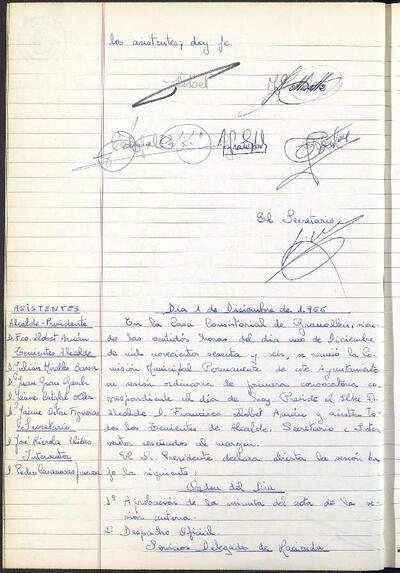 los asistentes; doy fe.
El Secretario
ASISTENTES
Alcalde-Presidente
D. Fco. Llobet Arnán
Tenientes Alcalde
D. Julian
D. Juan Grau Gasch
D. Jaime
D. Jaime Dotau Figueras
Secretario
D. José Rierola Alibés
Interventor
D. Pedro Casanovas
Dia 1 de Diciembre de 1.966
En la Casa Consistorial de Granollers, siendo
las veintidós horas del dia uno de Diciembre
de mil novecientos sesenta y seis, se reunió la Co-
misión Municipal Permanente de este Ayuntamiento
en sesión ordinaria de primera convocatoria co-
rrespondiente al dia de hoy. Preside el Iltre. Sr.
Alcalde D. Francisco Llobet Arnán y asisten to-
dos los Tenientes de Alcalde, Secretario e Inter-
ventor reseñados al margen.
El Sr. Presidente declara abierta la sesión ba-
jo la siguiente
Orden del Dia
1º Aprobación de la minuta del acta de la se-
sión anterior.
2º Despacho Oficial.
Servicios Delegado de Hacienda